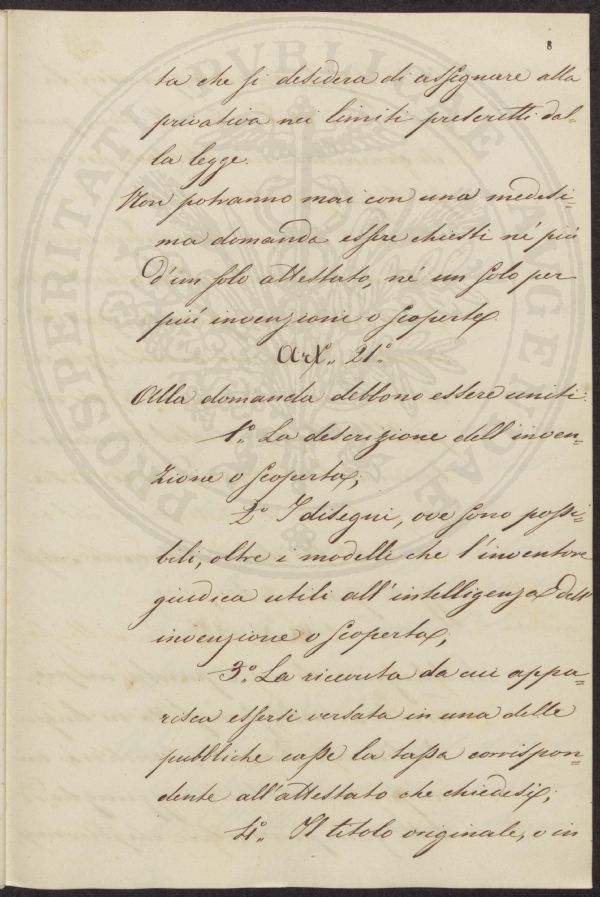 8
ta che si desidera di assegnare alla
privativa nei limiti prescritti dal=
la legge.
Non potranno mai con una medesi=
ma domanda essere chiesti né più
d'un solo attestato, né un solo per
più invenzioni o scoperte.
Art.° 21.°
Alla domanda debbono essere uniti:
1.° La descrizione dell'inven=
zione o scoperta;
2.° I disegni, ove sono possi=
bili, oltre i modelli che l'inventore
giudica utili all'intelligenza dell'
invenzione o scoperta;
3.° La ricevuta da cui appa=
risca essersi versata in una delle
pubbliche casse la tassa corrispon=
dente all'attestato che chiedesi;
4.° Il titolo originale, o in
PROSPERITATI PUBLICAE AUGENDAE